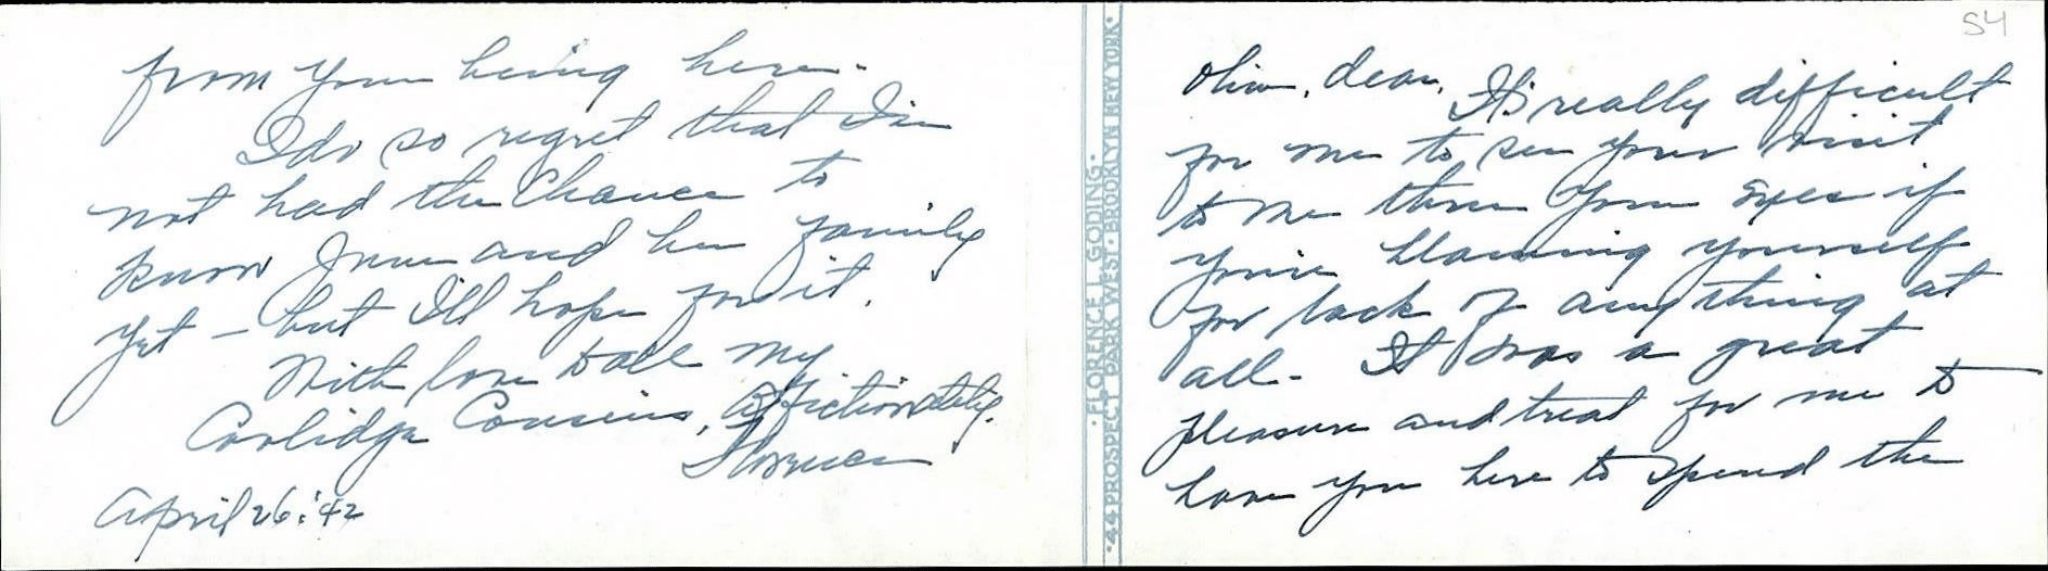 54
Olive, dear,
It's really difficult
for me to see your visit
to me thru your eyes if
you're blaming yourself
for lack of anything at
all. It was a great
pleasure and treat for me to
have you here to spend the
· FLORENCE L. GODING ·
· 44 PROSPECT PARK WEST · BROOKLYN NEW YORK ·
from your being here.
I do so regret that I've
not had the chance to
know June and her family
yet – but I'll hope for it.
With love to all my
Coolidge Cousins, affectionately,
Florence
April 26: '42